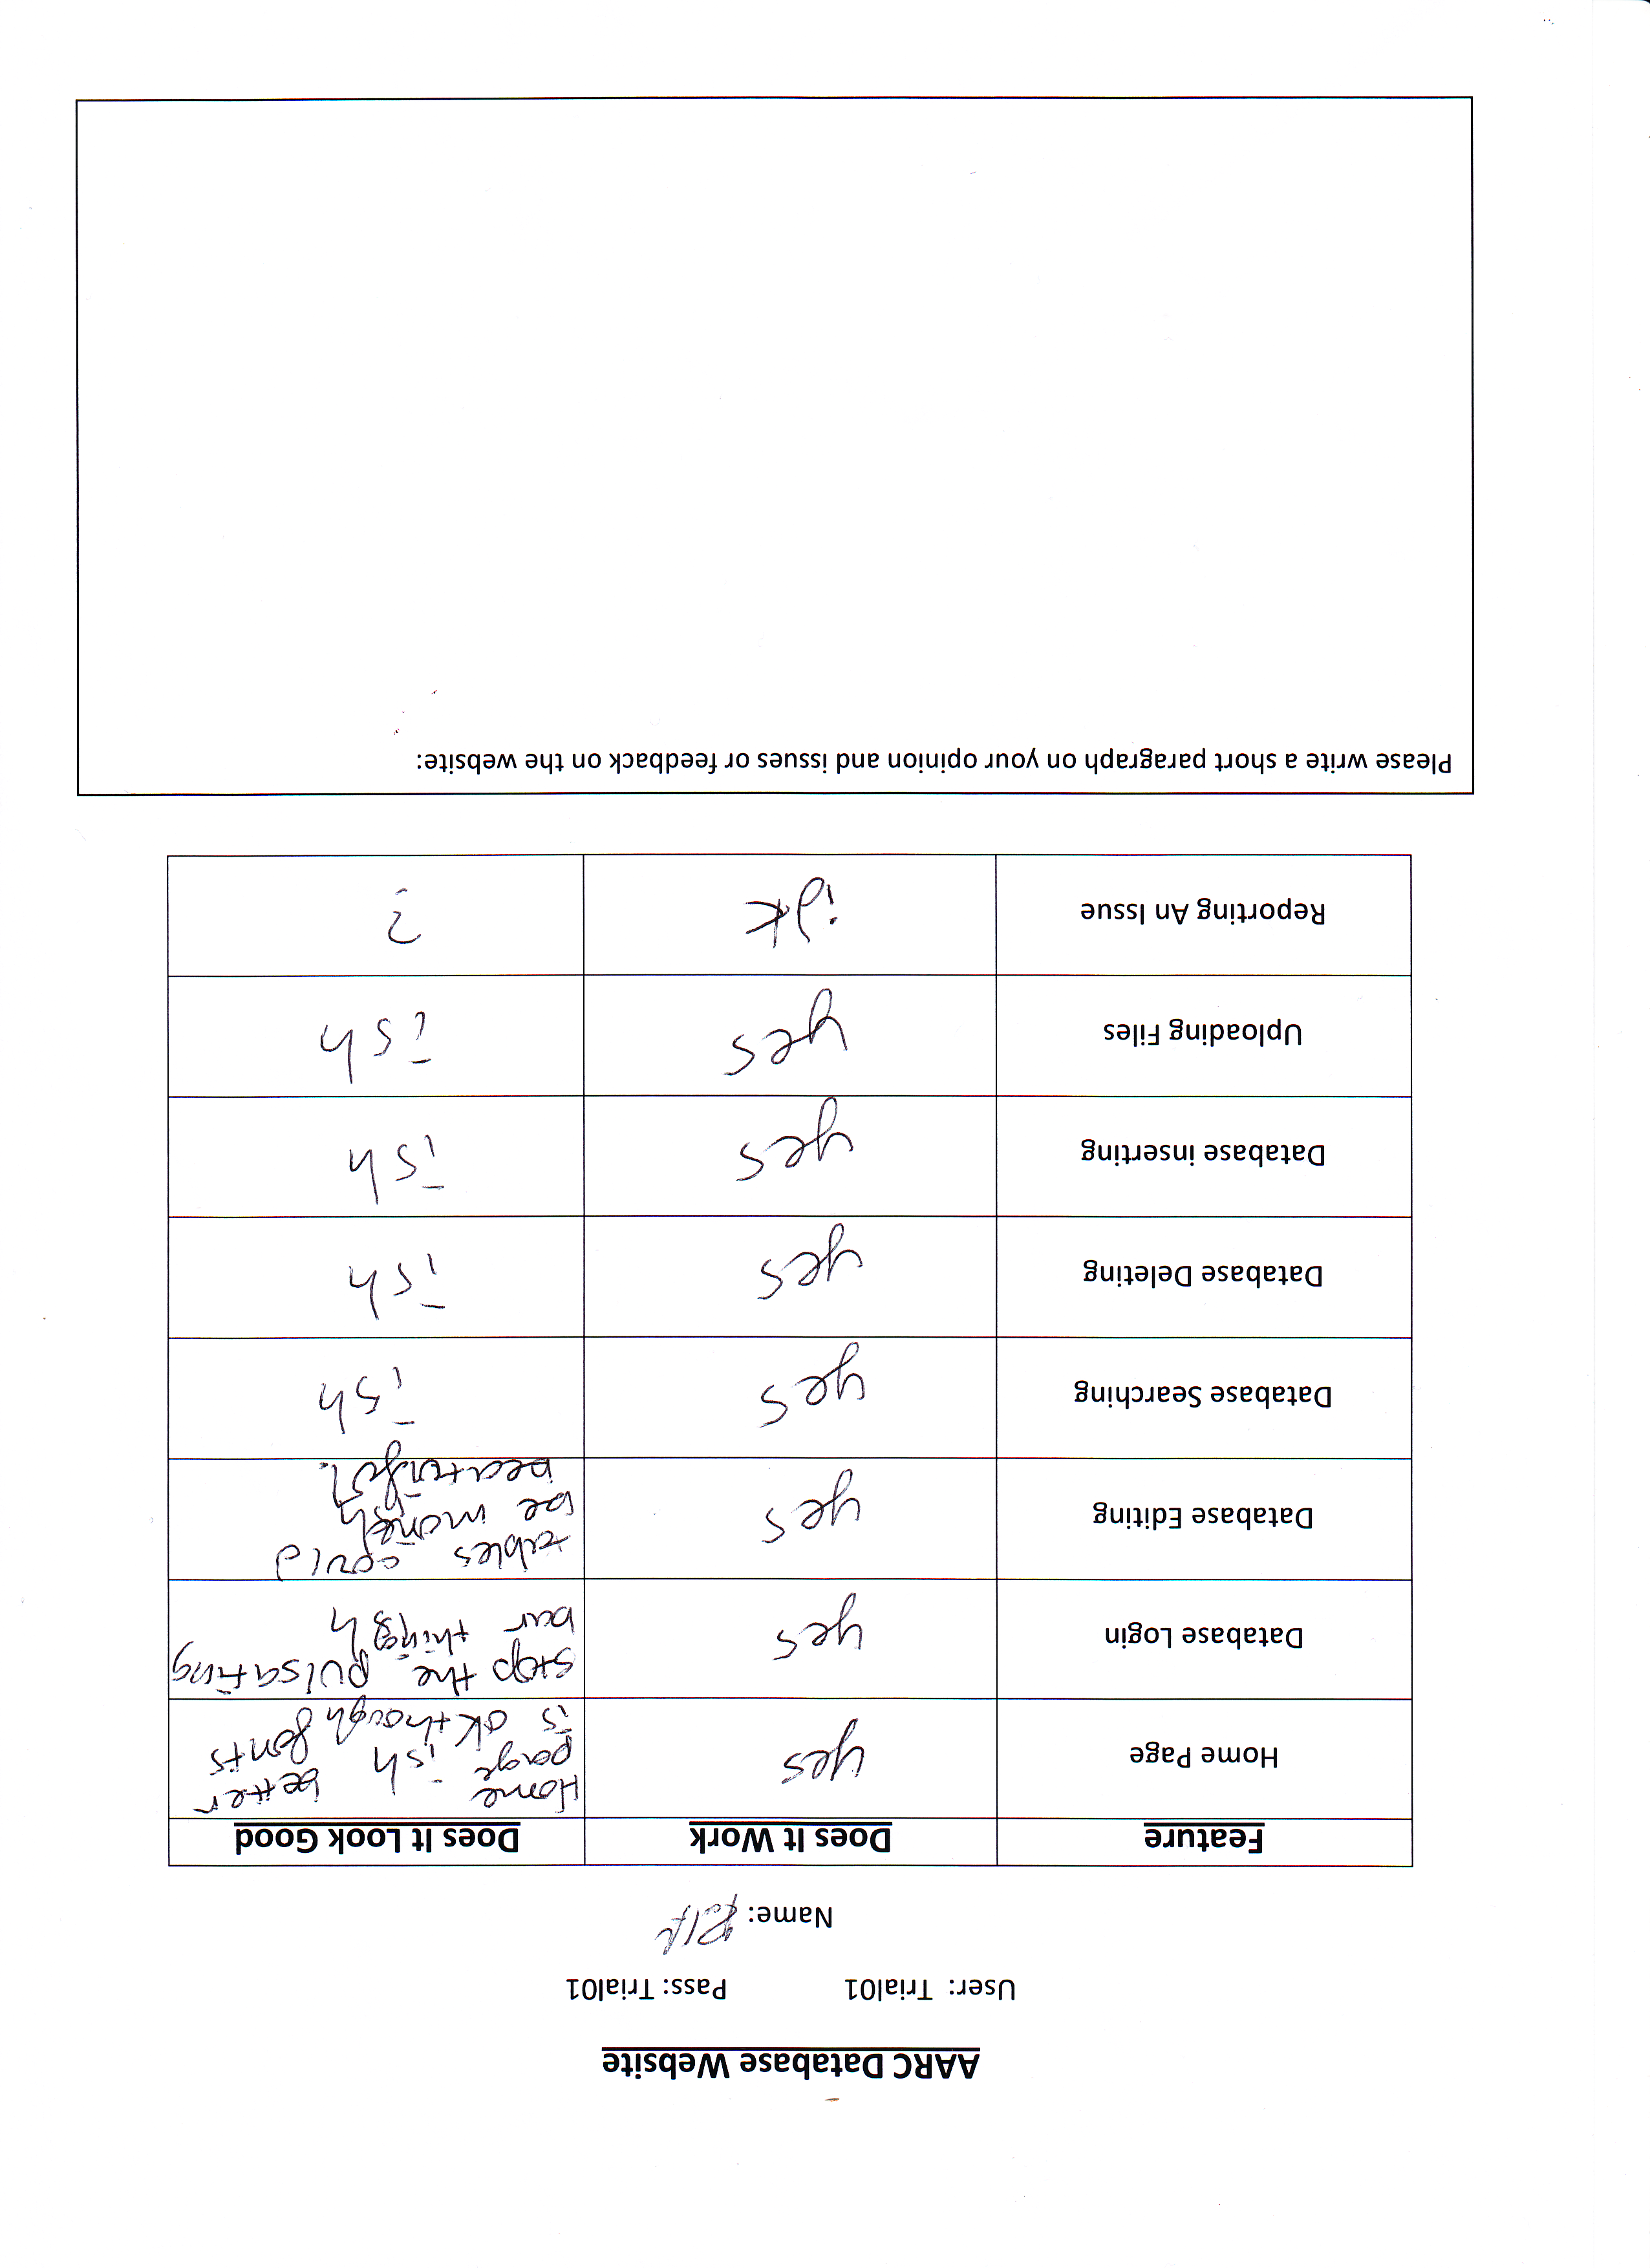 AARC Database Website
User: Trial01 Pass: Trial01
Name:
Feature Does It Work Does It Look Good
Home Page yes Home page -ish better
is ok though fonts
Database Login yes stop the pulsating
bar thing -ish
Database Editing yes tables could
be more -ish
beautiful.
Database Searching yes -ish
Database Deleting yes -ish
Database inserting yes -ish
Uploading Files yes -ish
Reporting An Issue idk ?
Please write a short paragraph on your opinion and issues or feedback on the website: